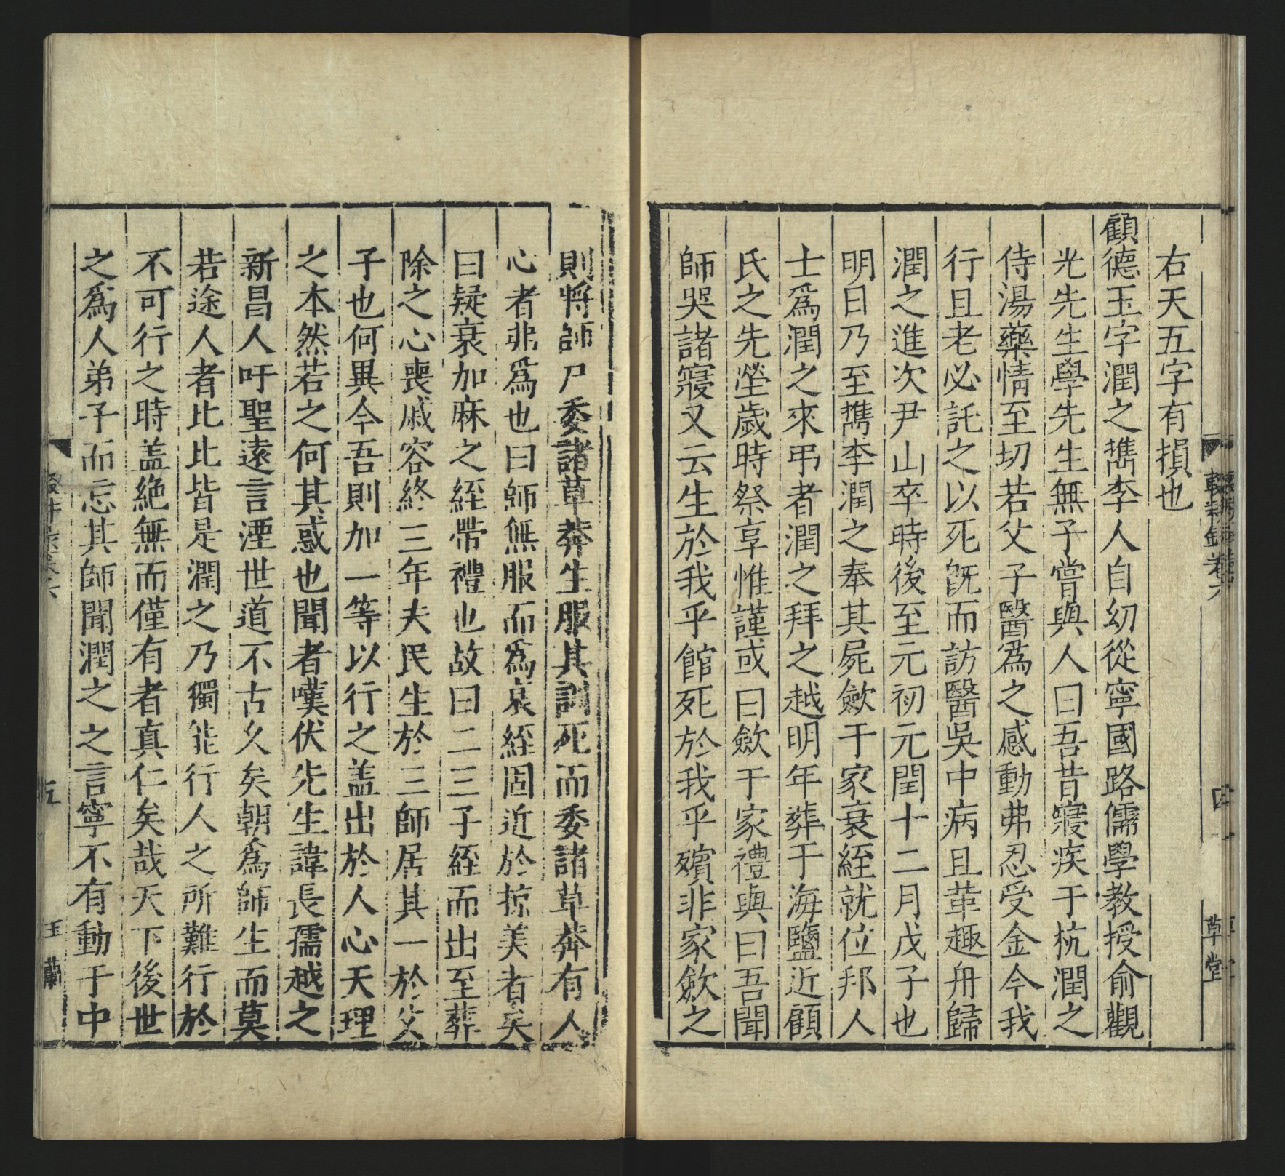 右天五字有損也
顧德玉字潤之檇李人自幼從寧國路儒學教授俞觀
光先生學先生無子嘗與人曰吾昔寢疾于杭潤之
侍湯藥情至切若父子醫爲之感動弗忍受金今我
行且老必託之以死旣而訪醫吳中病且革趣舟歸
潤之進次尹山卒時後至元初元閏十二月戊子也
明日乃至檇李潤之奉其屍斂于家衰絰就位邦人
士爲潤之來弔者潤之拜之越明年葬于海鹽近顧
氏之先塋歲時祭享惟謹或曰斂于家禮與曰吾聞
師哭諸寢又云生於我乎館死於我乎殯非家斂之
則將師尸委諸草莽生服其訓死而委諸草莽有人
心者弗爲也曰師無服而爲衰絰固近於掠美者矣
曰疑衰加麻之絰帶禮也故曰二三子絰而出至葬
除之心喪戚容終三年夫民生於三師居其一於父
子也何異今吾則加一等以行之盖出於人心天理
之本然若之何其惑也聞者嘆伏先生諱長孺越之
新昌人吁聖遠言湮世道不古久矣朝爲師生而莫
若途人者比比皆是潤之乃獨能行人之所難行於
不可行之時盖絶無而僅有者真仁矣哉天下後世
之爲人弟子而忘其師聞潤之之言寧不有動于中
輟耕錄卷六
四
草堂
五
玉蘭